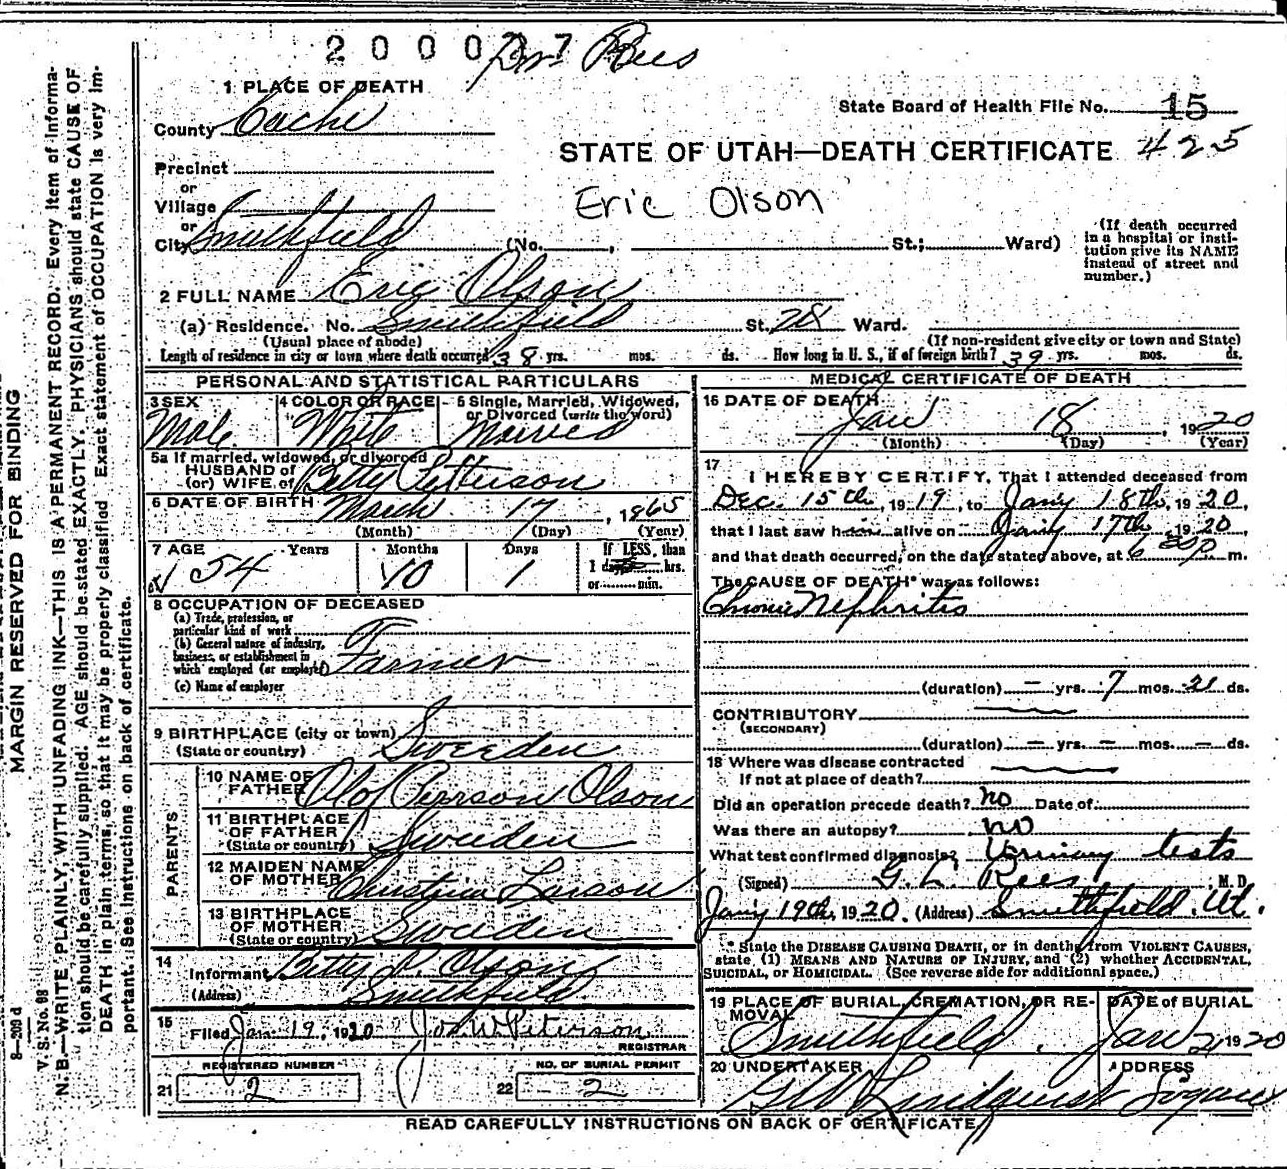 200077 Dr Rees
1 PLACE OF DEATH
State Board of Health File No. 15
County Cache
STATE OF UTAH—DEATH CERTIFICATE 425
Precinct
or
Village
Eric Olson
or
City Smithfield (No. , St.; Ward)
(If death occurred in a hospital or insti-
tution give its NAME
instead of street and
number.)
2 FULL NAME Eric Olson
(a) Residence. No. Smithfield St. Ward.
(Usual place of abode) (If non-resident give city or town and State)
Length of residence in city or town where death occurred 38 yrs. mos. ds. How long in U. S., if of foreign birth? 39 yrs. mos. ds.
PERSONAL AND STATISTICAL PARTICULARS
3 SEX 4 COLOR OR RACE 5 Single, Married, Widowed,
or Divorced (write the word)
Male White Married
5a If married, widowed, or divorced
HUSBAND of
(or) WIFE of Betty Petterson
6 DATE OF BIRTH March 17, 1865
(Month) (Day) (Year)
7 AGE Years Months Days If LESS than
1 day hrs.
or min.
54 10 1
8 OCCUPATION OF DECEASED
(a) Trade, profession, or
particular kind of work
(b) General nature of industry,
business, or establishment in
which employed (or employer) Farmer
(c) Name of employer
9 BIRTHPLACE (city or town)
(State or country) Sweeden
PARENTS
10 NAME OF
FATHER Olof Peerson Olson
11 BIRTHPLACE
OF FATHER
(State or country) Sweeden
12 MAIDEN NAME
OF MOTHER Christina Larson
13 BIRTHPLACE
OF MOTHER
(State or country) Sweeden
14
Informant Betty P. Olson
(Address) Smithfield
15
Filed Jan. 19, 1920 Jos. W. Peterson
REGISTRAR
REGISTERED NUMBER NO. OF BURIAL PERMIT
21 2 22 2
MEDICAL CERTIFICATE OF DEATH
16 DATE OF DEATH
Jan 18, 1920
(Month) (Day) (Year)
17
I HEREBY CERTIFY, That I attended deceased from
Dec. 15th, 1919, to Jan'y 18th, 1920,
that I last saw him alive on Jan'y 17th, 1920
and that death occurred, on the date stated above, at 6 p m.
The CAUSE OF DEATH* was as follows:
Chronic Nephritis
(duration) — yrs. 7 mos. 21 ds.
CONTRIBUTORY
(SECONDARY)
(duration) — yrs. — mos. — ds.
18 Where was disease contracted
If not at place of death?
Did an operation precede death? no Date of
Was there an autopsy? no
What test confirmed diagnosis? Urinary tests
(Signed) G. L. Rees M. D.
Jan'y 19th, 1920. (Address) Smithfield, Ut.
* State the DISEASE CAUSING DEATH, or in deaths from VIOLENT CAUSES,
state, (1) MEANS AND NATURE OF INJURY, and (2) whether ACCIDENTAL,
SUICIDAL, or HOMICIDAL. (See reverse side for additional space.)
19 PLACE OF BURIAL, CREMATION, OR RE-
MOVAL DATE of BURIAL
Smithfield. Jan 1920
20 UNDERTAKER ADDRESS
Lindquist Logan
READ CAREFULLY INSTRUCTIONS ON BACK OF CERTIFICATE
MARGIN RESERVED FOR BINDING
8—2019 d V. S. No. 88
N. B.—WRITE PLAINLY, WITH UNFADING INK—THIS IS A PERMANENT RECORD. Every item of informa-
tion should be carefully supplied. AGE should be stated EXACTLY. PHYSICIANS should state CAUSE OF
DEATH in plain terms, so that it may be properly classified. Exact statement of OCCUPATION is very im-
portant. See instructions on back of certificate.